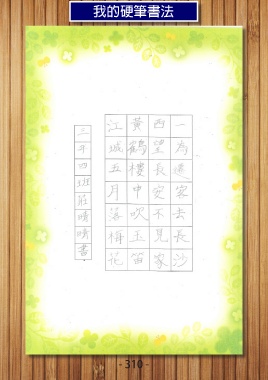 我的硬筆書法
一為遷客去長沙
西望長安不見家
黃鶴樓中吹玉笛
江城五月落梅花
三年四班莊晴晴書
- 310 -